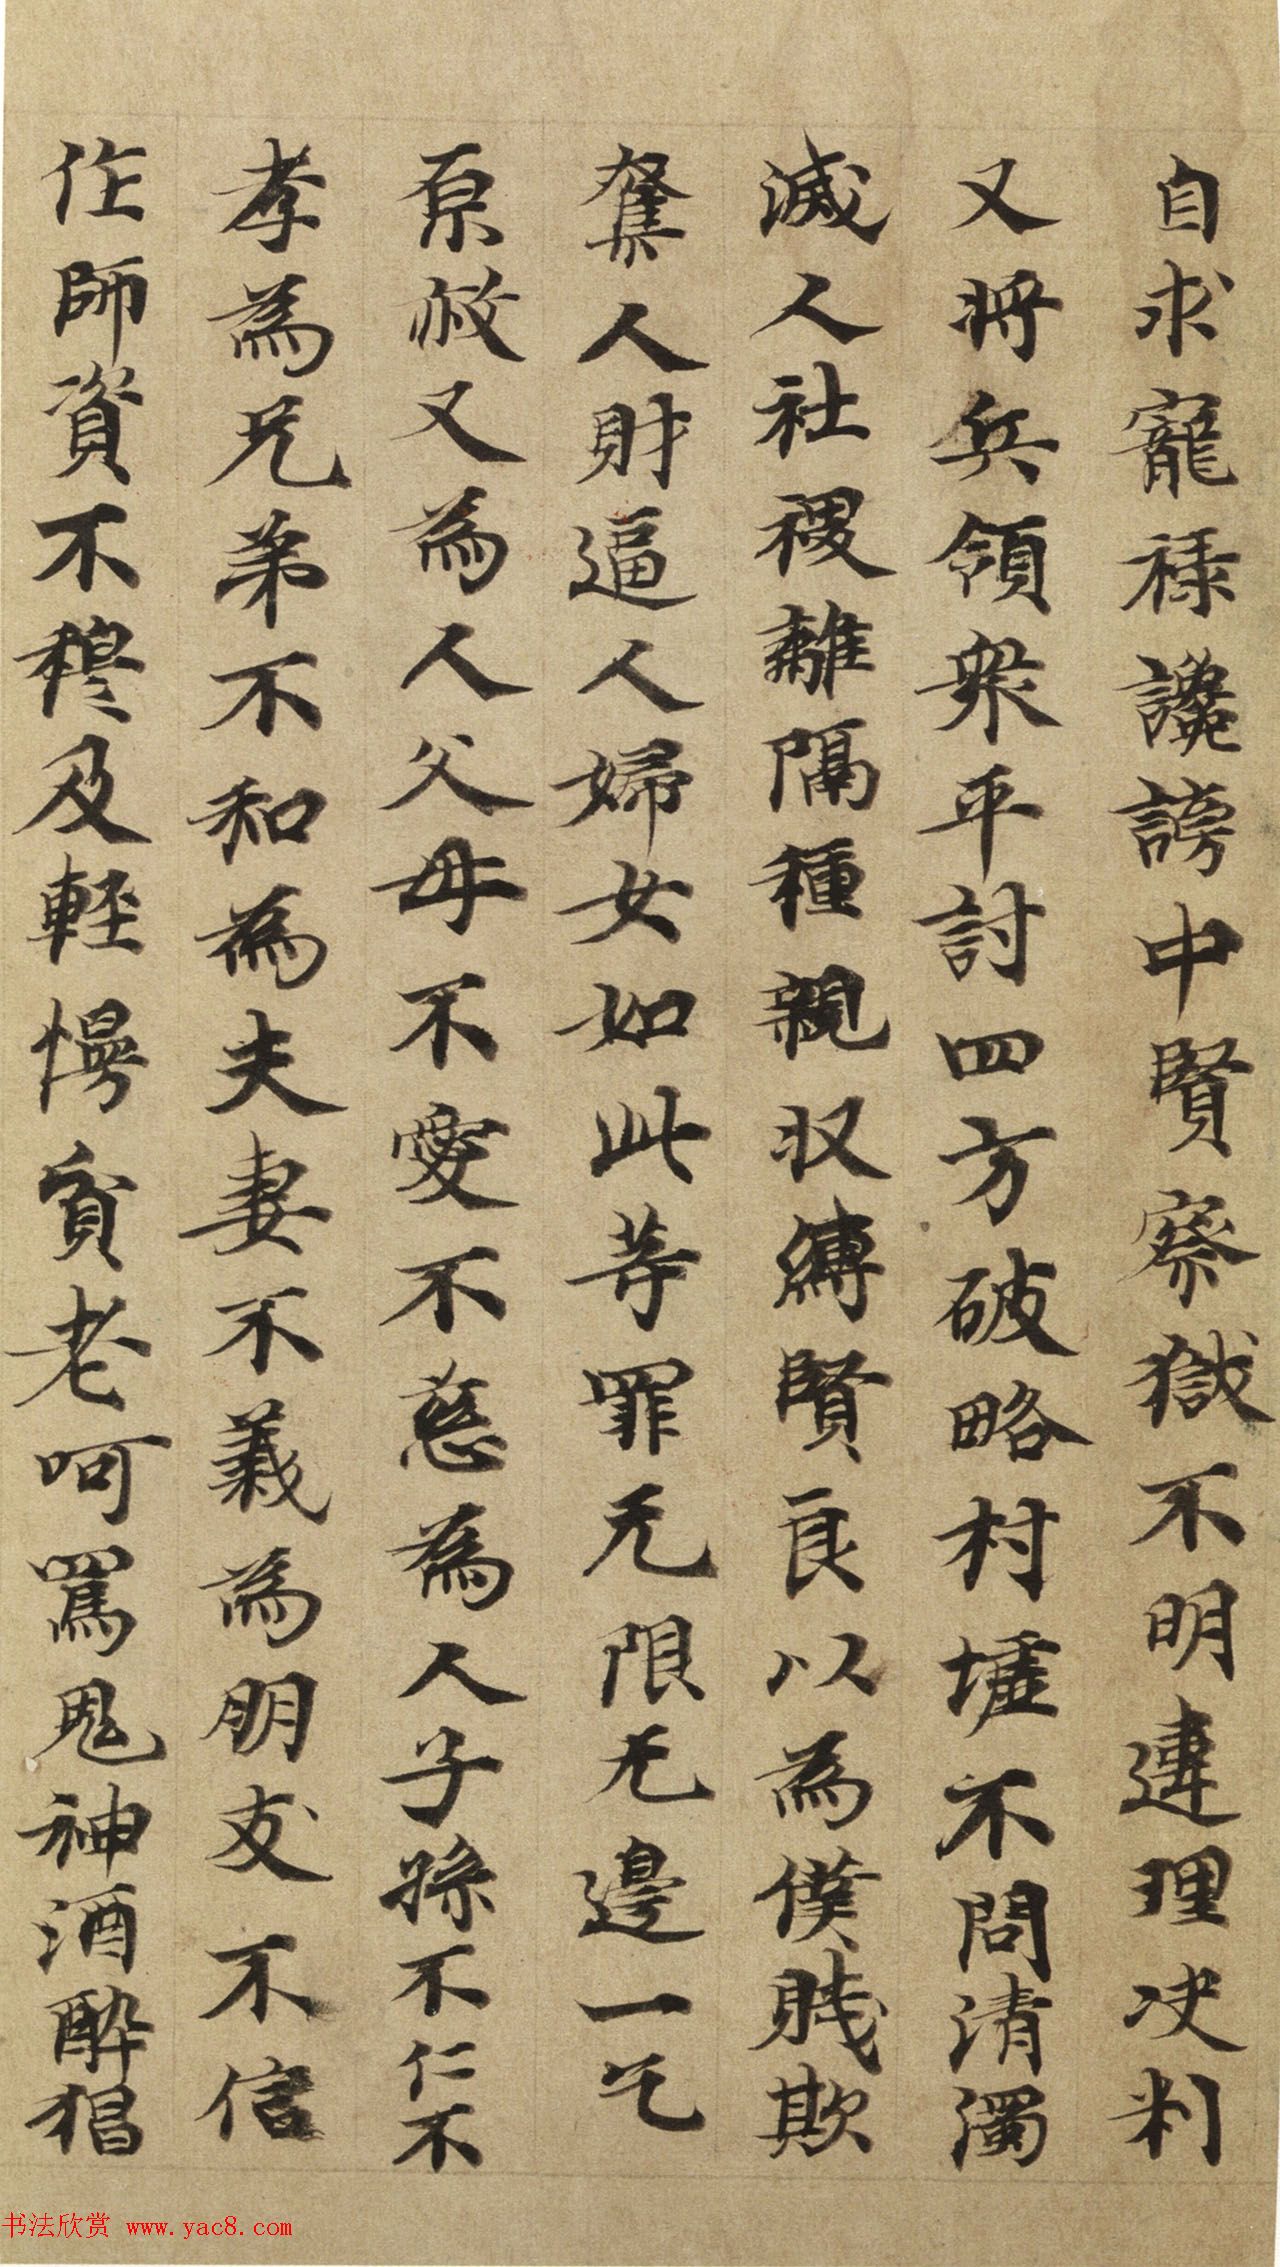 自求寵祿讒謗中賢察獄不明違理决判
又將兵領衆平討四方破略村墟不問清濁
滅人社稷離隔種親収縛賢良以為僕賤欺
奪人財逼人婦女如此等罪无限无邊一乞
原赦又為人父母不愛不慈為人子孫不仁不
孝為兄弟不和為夫妻不義為朋友不信
作師資不穆及輕慢貧老呵罵鬼神酒酔猖
书法欣赏 www.yac8.com